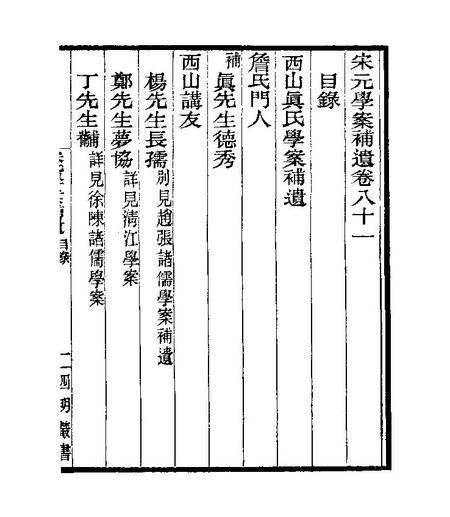 宋元學案補遺卷八十一
目錄
西山眞氏學案補遺
詹氏門人
補眞先生德秀
西山講友
楊先生長孺別見趙張諸儒學案補遺
鄭先生夢協詳見清江學案
丁先生黼詳見徐陳諸儒學案
目錄 一 四明叢書